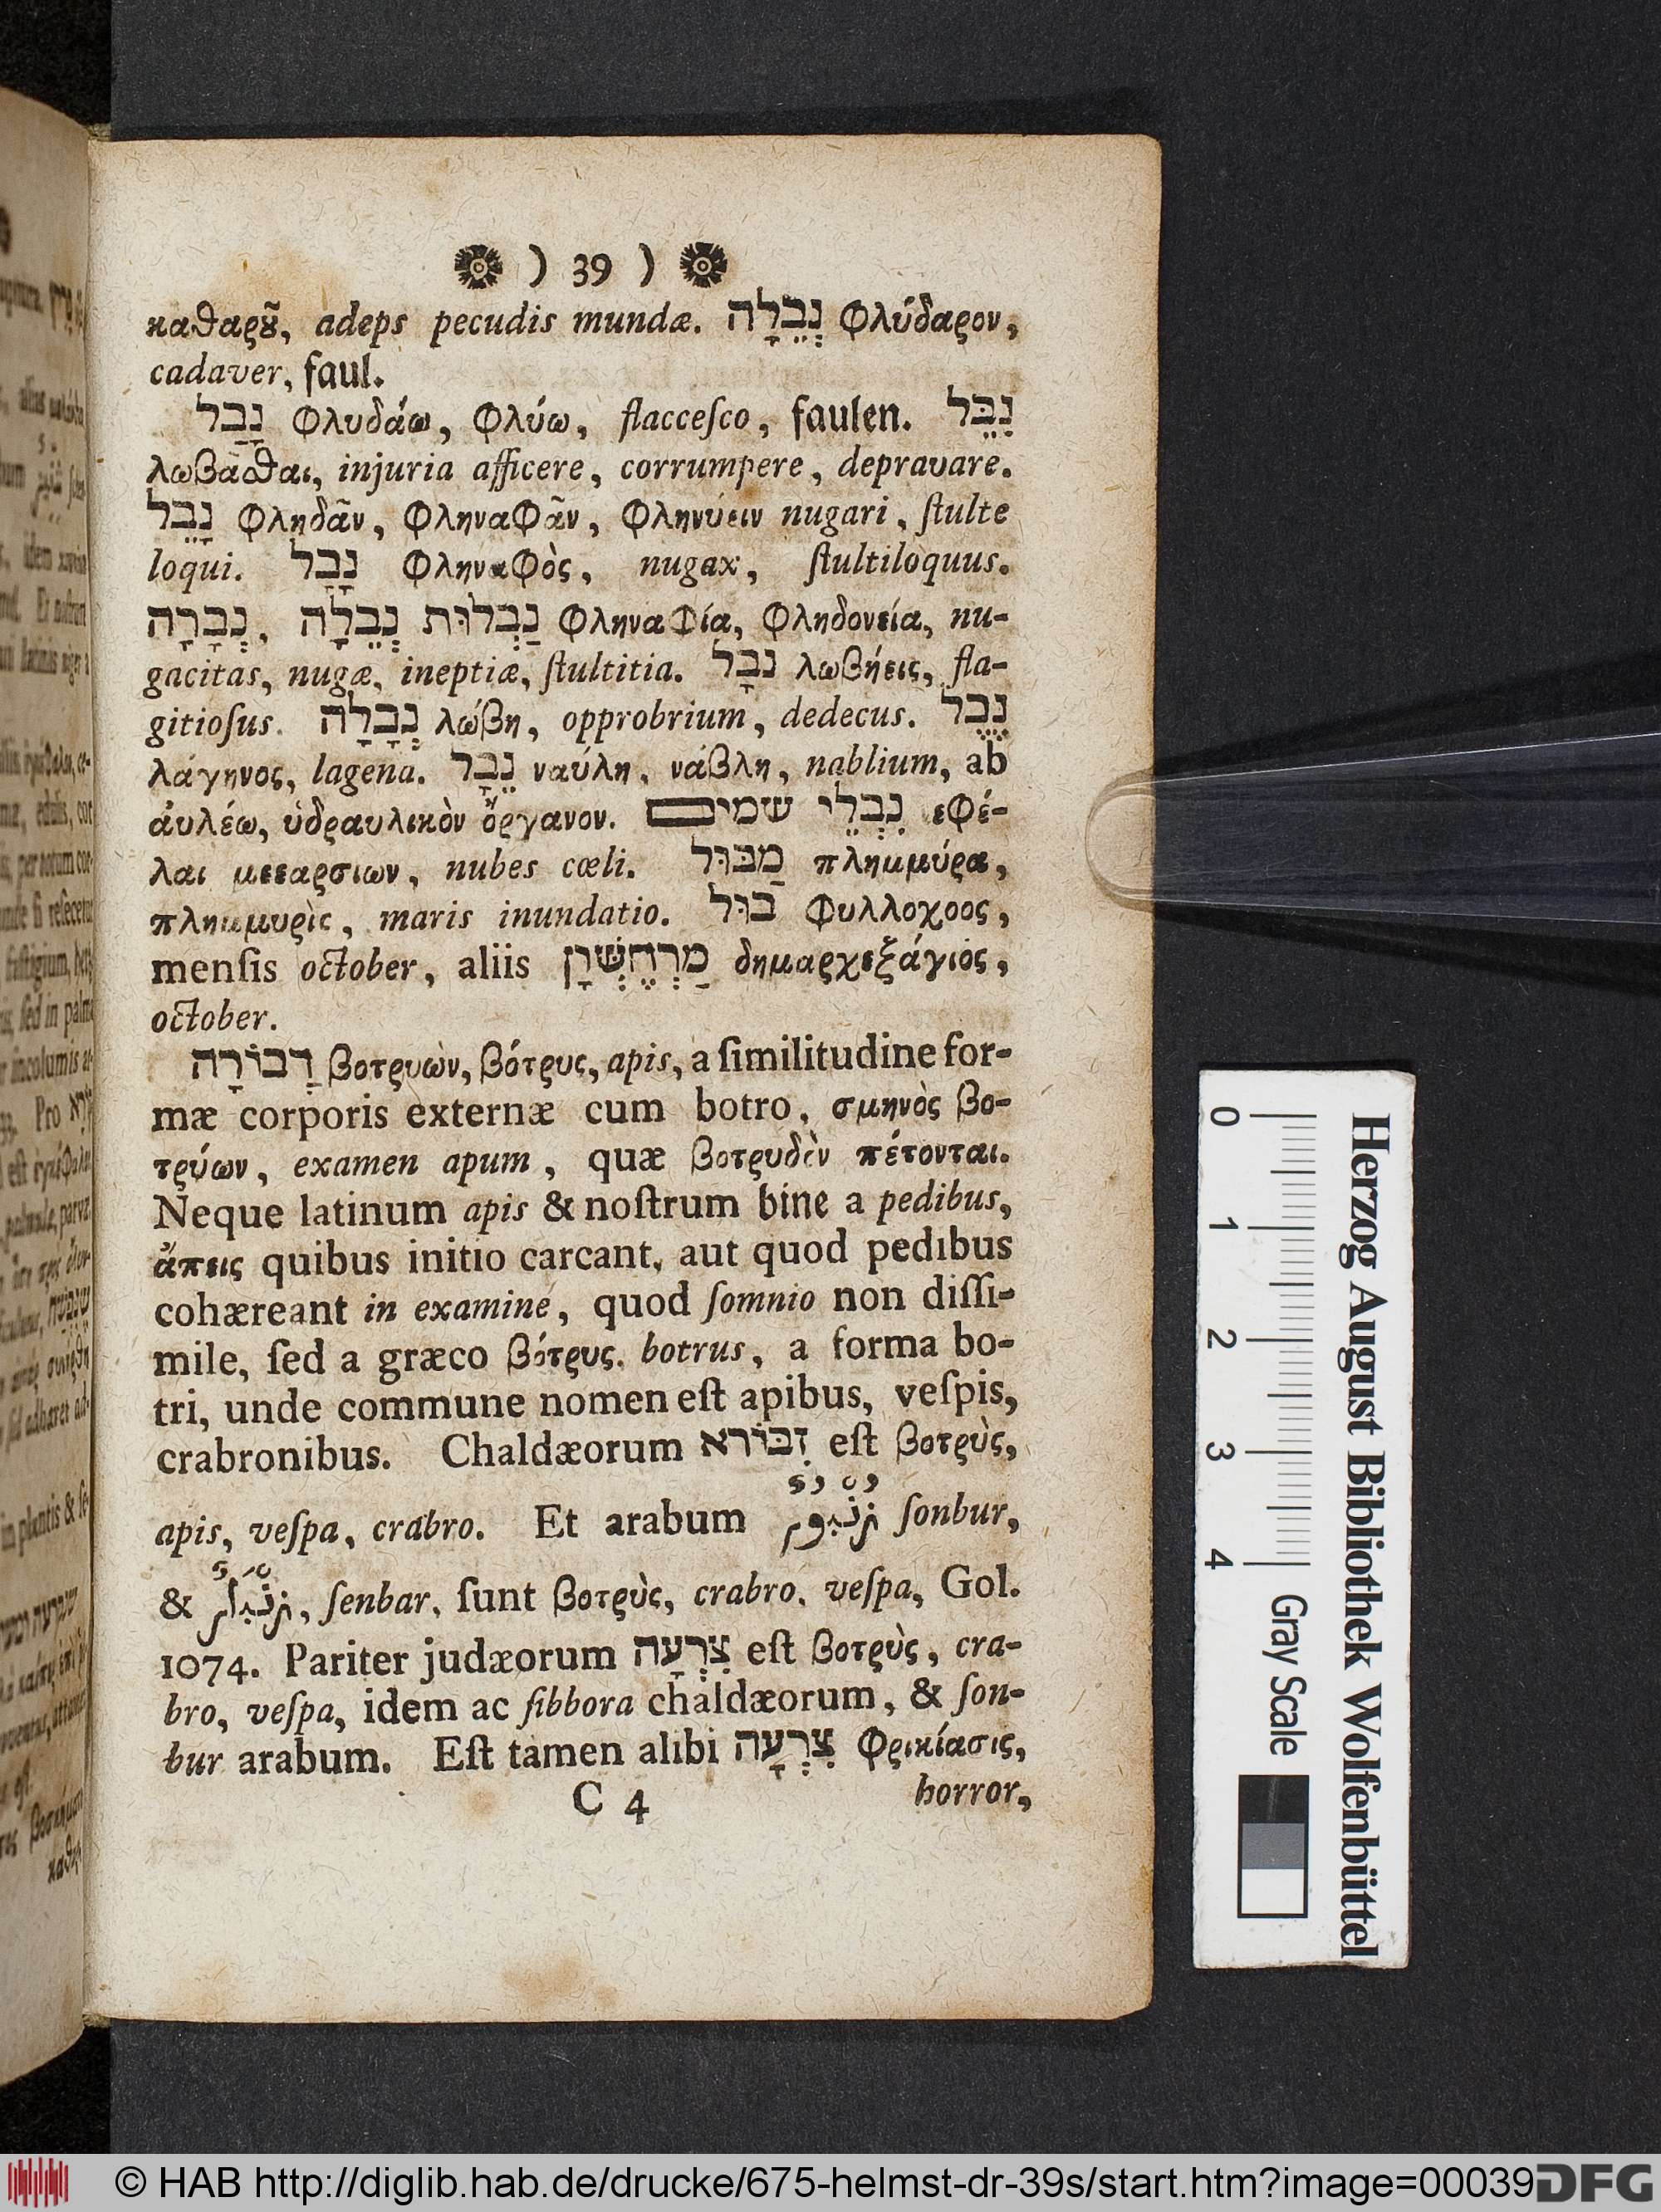 ) 39 )
καθαρȣ̃, adeps pecudis mundæ. נְבֵלָה Φλύδαρον,
cadaver, faul.
נָבַל Φλυδάω, Φλύω, flacceſco, faulen. נִבֵּל
λωβᾶσθαι, injuria afficere, corrumpere, depravare.
נָבֵל Φληδᾶν, ΦληναΦᾶν, Φληνύειν nugari, ſtulte
loqui. נָבָל ΦληναΦὸς, nugax, ſtultiloquus.
נְבָרָה, נְבֵלָה נַבְלוּת ΦληναΦία, Φληδονεία, nu-
gacitas, nugæ, ineptiæ, ſtultitia. נבָל λωβήεις, fla-
gitioſus. נְבָלָה λώβη, opprobrium, dedecus. נֶבֶל
λάγηνος, lagena. נֵבָל ναύλη, νάβλη, nablium, ab
ἀυλέω, ὑδραυλικὸν ὄργανον. נִבְלֵי שמים εΦέ-
λαι μεταρσιων, nubes cœli. מַבּוּל πλημμύρα,
πλημμυρὶς, maris inundatio. בוּל Φυλλοχοος,
menſis october, aliis מַרְחֶשְׁוָן δημαρχεξάγιος,
october.
דַבוֹרָה βοτρυὼν, βότρυς, apis, a ſimilitudine for-
mæ corporis externæ cum botro, σμηνὸς βο-
τρύων, examen apum, quæ βοτρυδὸν πέτονται.
Neque latinum apis & noſtrum bine a pedibus,
ἄπεις quibus initio carcant, aut quod pedibus
cohæreant in examine, quod ſomnio non diſſi-
mile, ſed a græco βότρυς, botrus, a forma bo-
tri, unde commune nomen eſt apibus, veſpis,
crabronibus. Chaldæorum זִבּוֹרא eſt βοτρὺς,
apis, veſpa, crabro. Et arabum زُنْبُورٌ ſonbur,
& زِنْبَارٌ, ſenbar, ſunt βοτρὺς, crabro, veſpa, Gol.
1074. Pariter judæorum צִרְעָה eſt βοτρὺς, cra-
bro, veſpa, idem ac ſibbora chaldæorum, & ſon-
bur arabum. Eſt tamen alibi צִרְעָה Φρικίασις,
C 4 horror,
Herzog August Bibliothek Wolfenbüttel
0 1 2 3 4 Gray Scale
© HAB http://diglib.hab.de/drucke/675-helmst-dr-39s/start.htm?image=00039
DFG